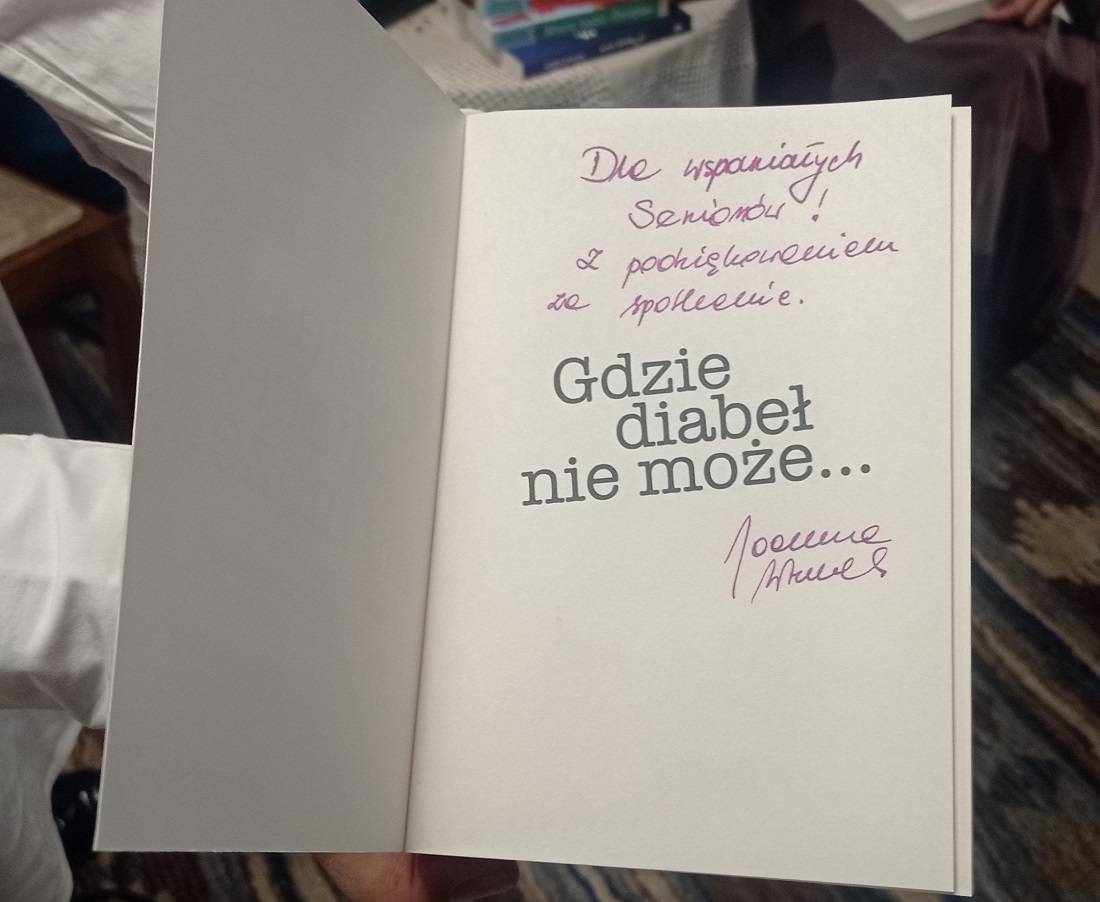 Dla wspaniałych
Seniorów!
Z podziękowaniem
za spotkanie.
Gdzie
diabeł
nie może...
Joanna